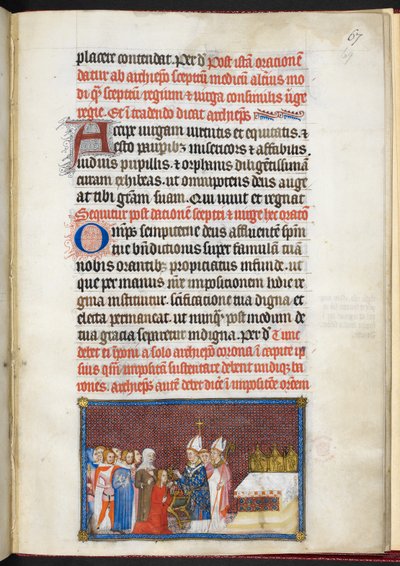 67
placere contendat. Per d Post istā oratione
datur ab archiepo sceptru medicu alterius mo
di qm sceptru regium & uirga consimilis uirge
regie. Et in tradendo dicat archieps
Accipe uirgam uirtutis et equitatis. &
esto pauperibz misericors & affabilis.
uiduis pupillis. & orphanis diligentissimam
curam exhibeas. ut omnipotens deus auge
at tibi gram suam. Qui uiuit et regnat
Sequitur post dacionem sceptri & uirge hec orato
Omps sempiterne deus affluentem spm
tue bndictionis super famulam tuā
nobis orantibus propiciatus infunde. ut
que per manus nre impositionem hodie re
gina instituitur. scificatione tua digna et
electa permaneat. ut nunqm postmodum de
tua gracia separetur indigna. Per d Tunc
debet ei iponi a solo archiepo corona in capite ip
sius qm impositam sustentare debent undiqz ba
rones. archieps aute debet dice i impositoe orōem